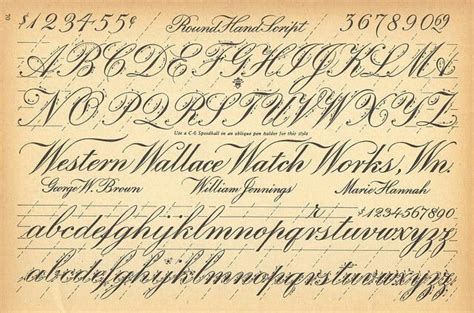 $123455¢ Round Hand Script 367890¢9
ABCDEFGHIJKLM
NOPQRSTUVWXYZ
Use a C-6 Speedball in an oblique pen holder for this style
Western Wallace Watch Works, Wn.
George W. Brown William Jennings Marie Hannah
r $1234567890
abcdefghijklmnopqrstuvwxyzz
abcdefghijklmnopqrstuvwxyzz